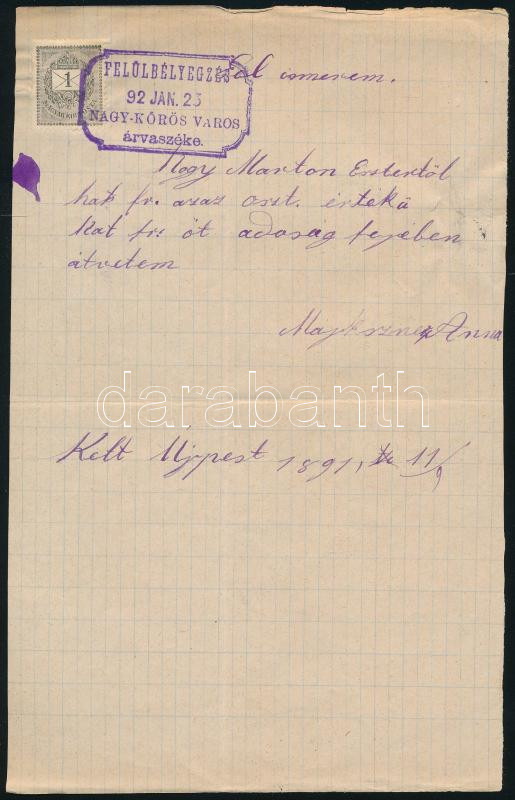 FELÜLBÉLYEGZÉS
92 JAN. 23
NAGY-KŐRÖS VÁROS
árvaszéke.
1
el ismerem.
Hogy Marton Esztertöl
hat fr. azaz oszt. értékü
hat fr: öt adoság fejében
átvetem
Anna
darabanth
Kelt Ujpest 1891, 11/9